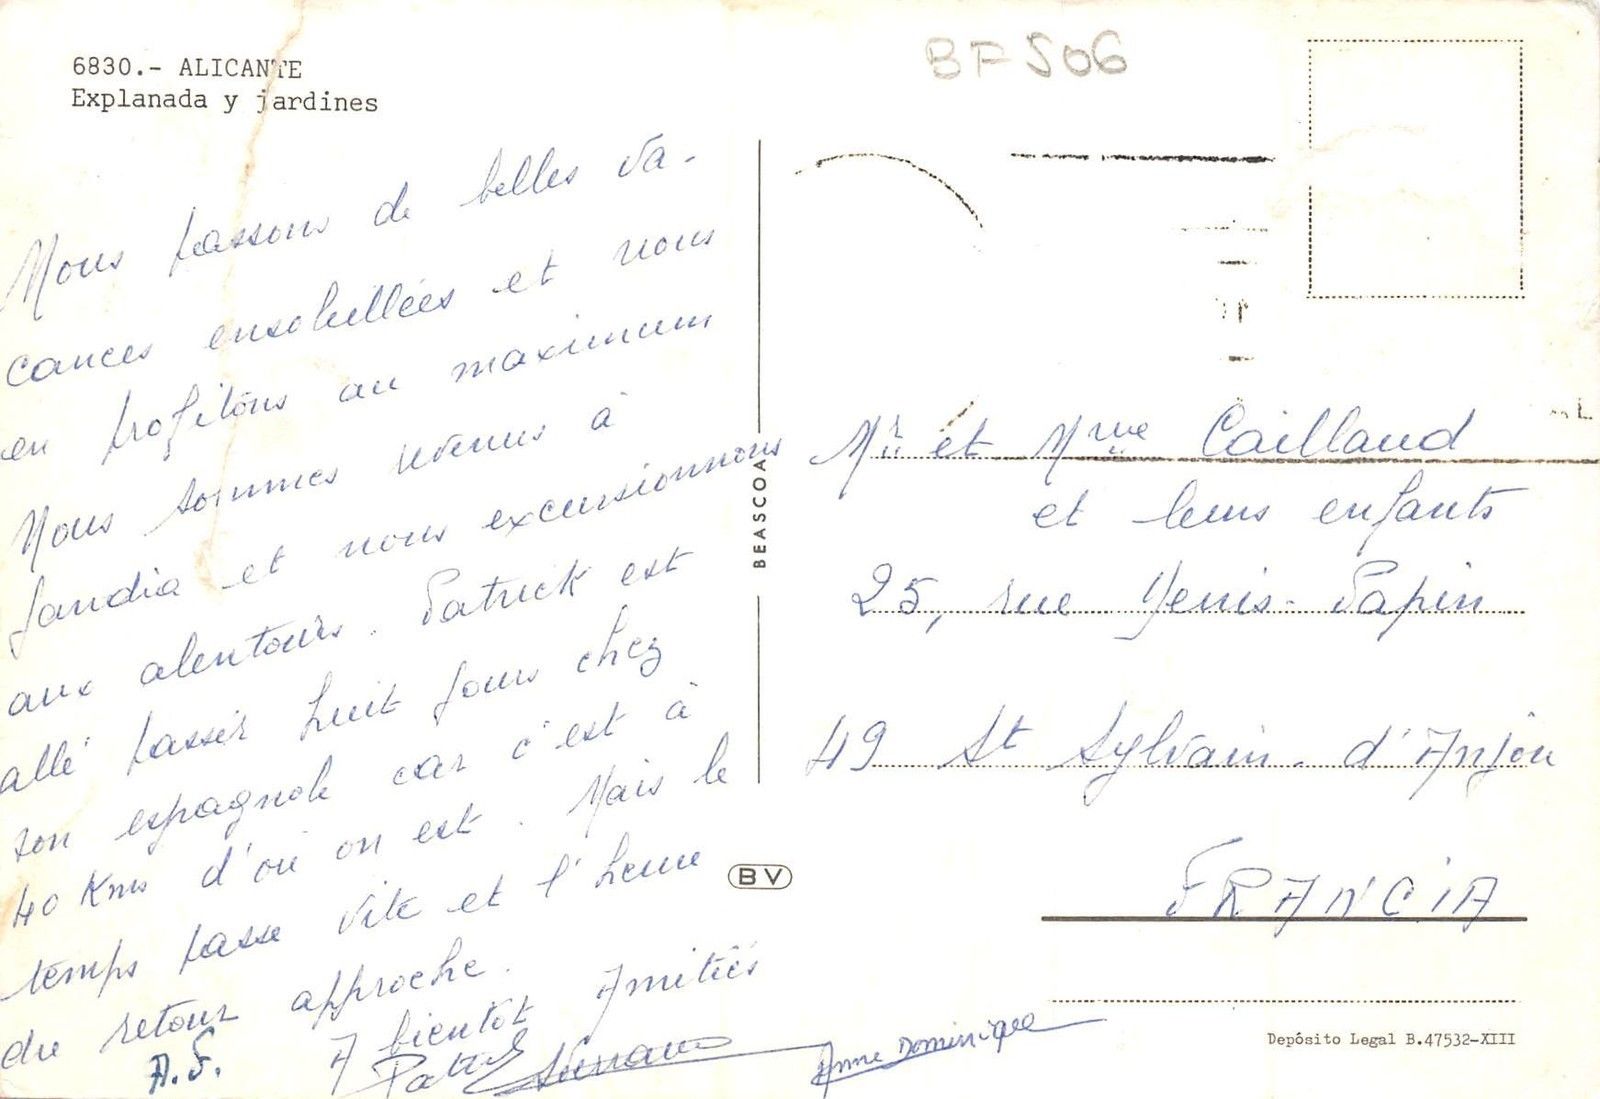 6830.- ALICANTE
Explanada y jardines
BF 506
Nous passons de belles va-
cances ensoleillées et nous
en profitons au maximum
Nous sommes revenus à
Gandia et nous excursionnons
aux alentours. Patrick est
allé passer huit jours chez
son espagnole car c'est à
40 Kms d'où on est. Mais le
temps passe vite et l'heure
du retour approche.
A bientôt Amitiés
A.S.
Patrick
Anne Dominique
BEASCOA
BV
Mr et Mme Caillaud
et leurs enfants
25, rue Denis-Papin
49 St Sylvain-d'Anjou
FRANCIA
Depósito Legal B.47532-XIII